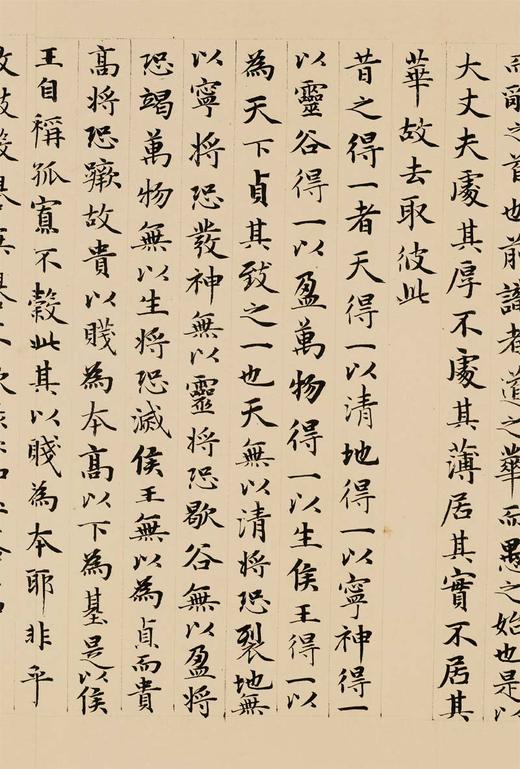 而亂之首也前識者道之華而愚之始也是以
大丈夫處其厚不處其薄居其實不居其
華故去取彼此
昔之得一者天得一以清地得一以寧神得一
以靈谷得一以盈萬物得一以生侯王得一以
為天下貞其致之一也天無以清將恐裂地無
以寧將恐發神無以靈將恐歇谷無以盈將
恐竭萬物無以生將恐滅侯王無以為貞而貴
高將恐蹶故貴以賤為本高以下為基是以侯
王自稱孤寡不穀此其以賤為本耶非乎
故致數譽無譽不欲